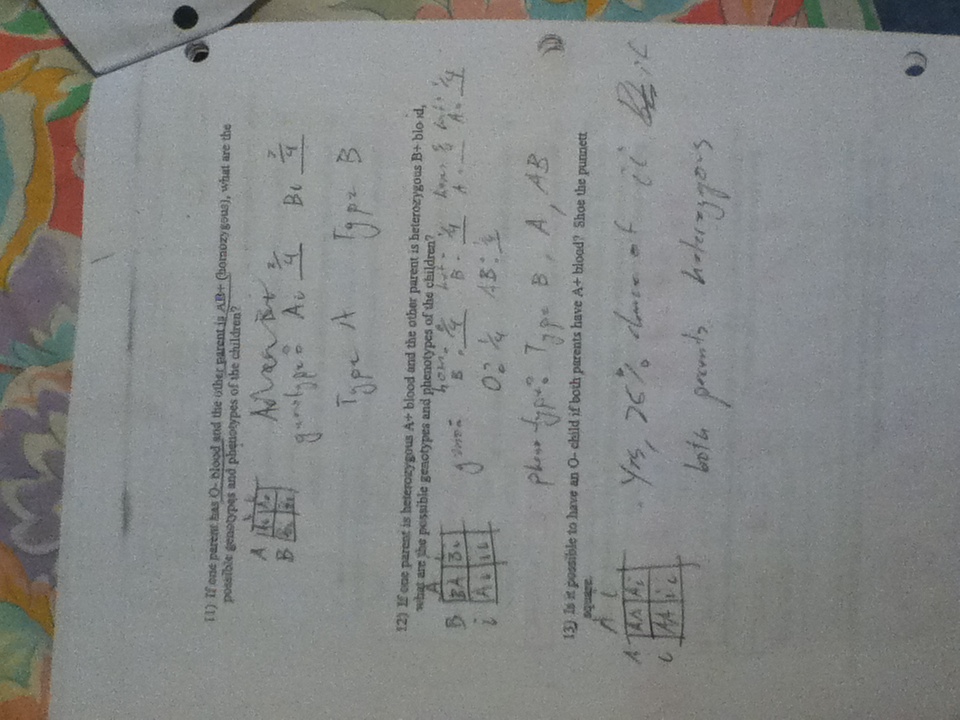 11) If one parent has O- blood and the other parent is AB+ (homozygous), what are the
possible genotypes and phenotypes of the children?
A Ai Ai
B
genotype: Ai 2/4 Bi 2/4
Type A Type B
12) If one parent is heterozygous A+ blood and the other parent is heterozygous B+ blood,
what are the possible genotypes and phenotypes of the children?
A i
B BA Bi
i Ai ii
B: B: 1/4 A: A: 1/4
O: 1/4 AB: 1/4
phenotype: Type B, A, AB
13) Is it possible to have an O- child if both parents have A+ blood? Shoe the punnett
square.
A i
A AA Ai
i AA ii
Yes, 25% chance of ii if
both parents heterozygous